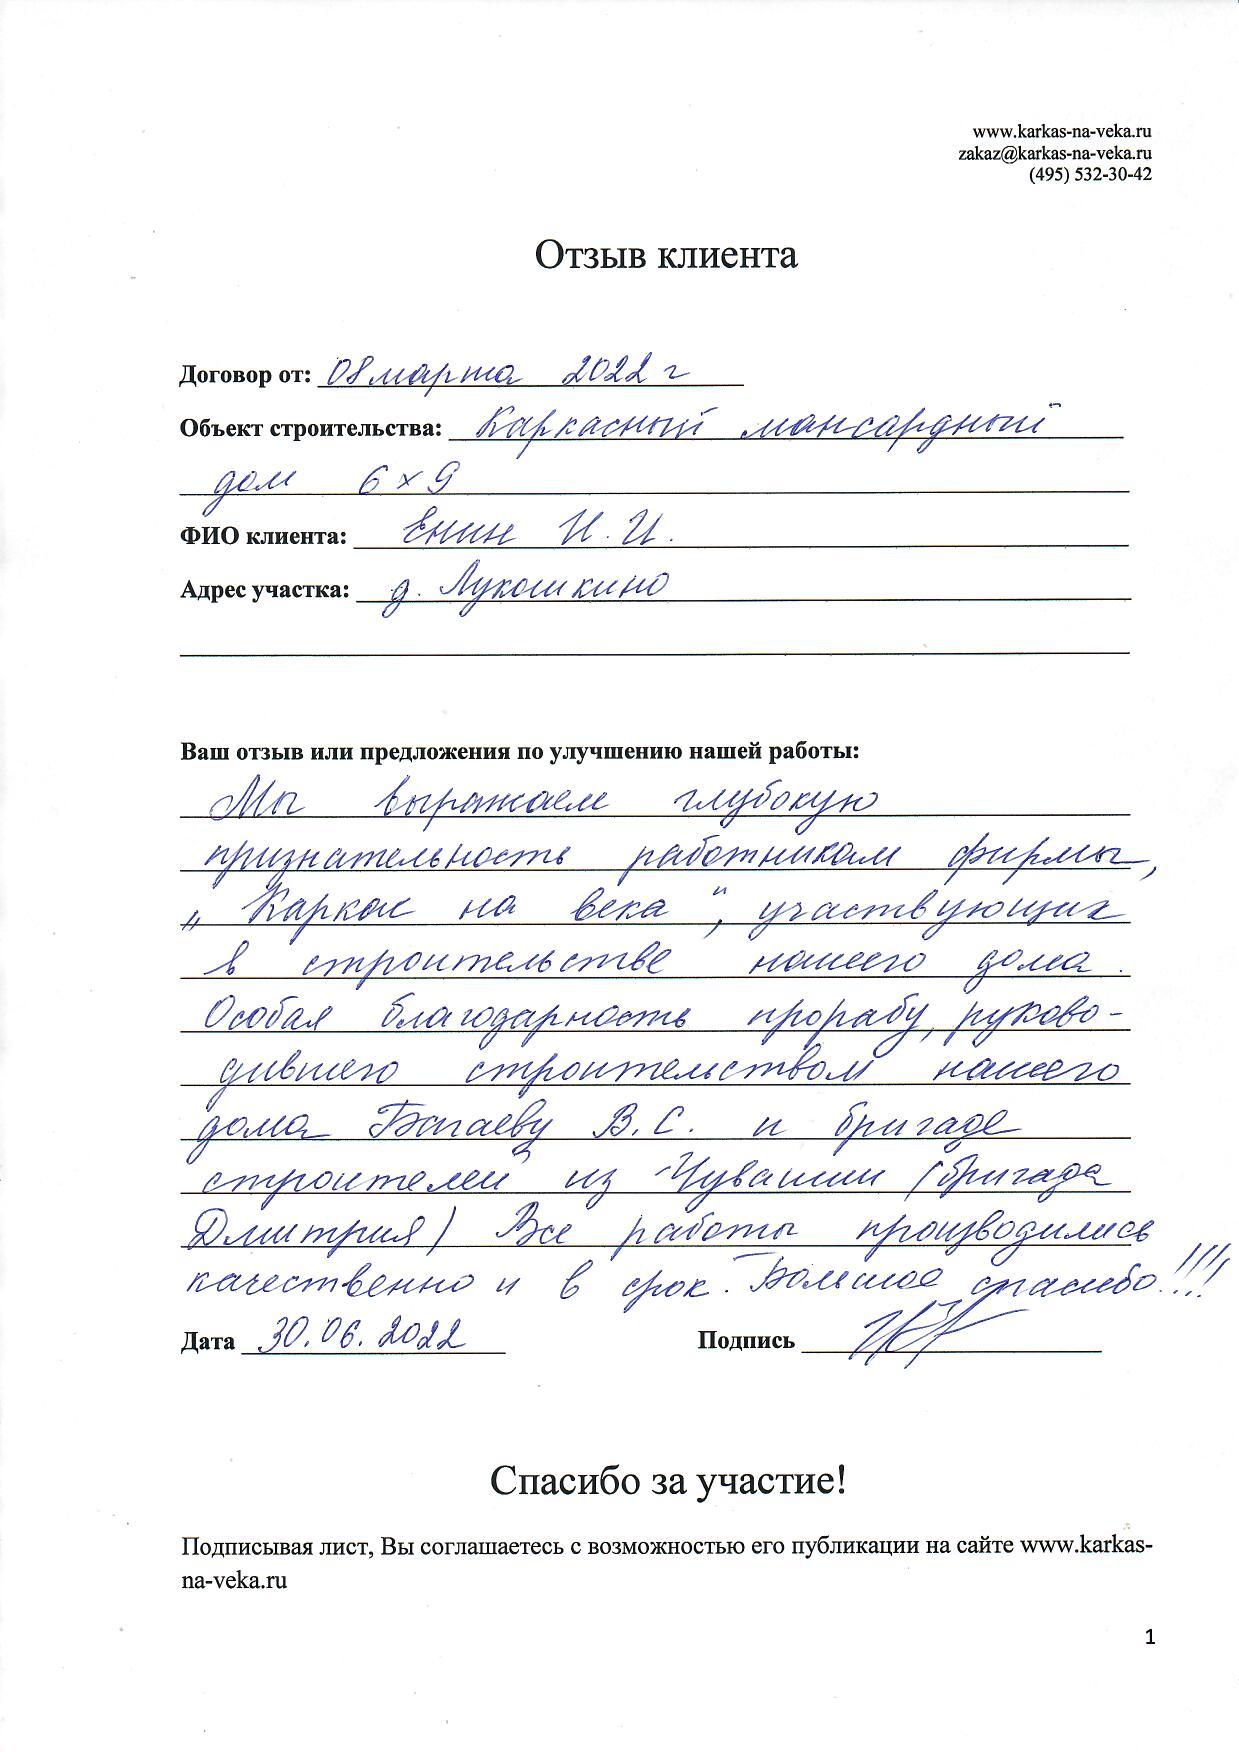 www.karkas-na-veka.ru
zakaz@karkas-na-veka.ru
(495) 532-30-42
Отзыв клиента
Договор от: 08 марта 2022 г
Объект строительства: Каркасный мансардный
дом 6 х 9
ФИО клиента: Енин И. И.
Адрес участка: д. Лукошкино
Ваш отзыв или предложения по улучшению нашей работы:
Мы выражаем глубокую
признательность работникам фирмы,
„Каркас на века“, участвующих
в строительстве нашего дома.
Особая благодарность прорабу, руково-
дившего строительством нашего
дома Багаеву В.С. и бригаде
строителей из Чувашии (бригада
Дмитрия) Все работы производились
качественно и в срок. Большое спасибо!!!
Дата 30.06.2022 Подпись
Спасибо за участие!
Подписывая лист, Вы соглашаетесь с возможностью его публикации на сайте www.karkas-
na-veka.ru
1